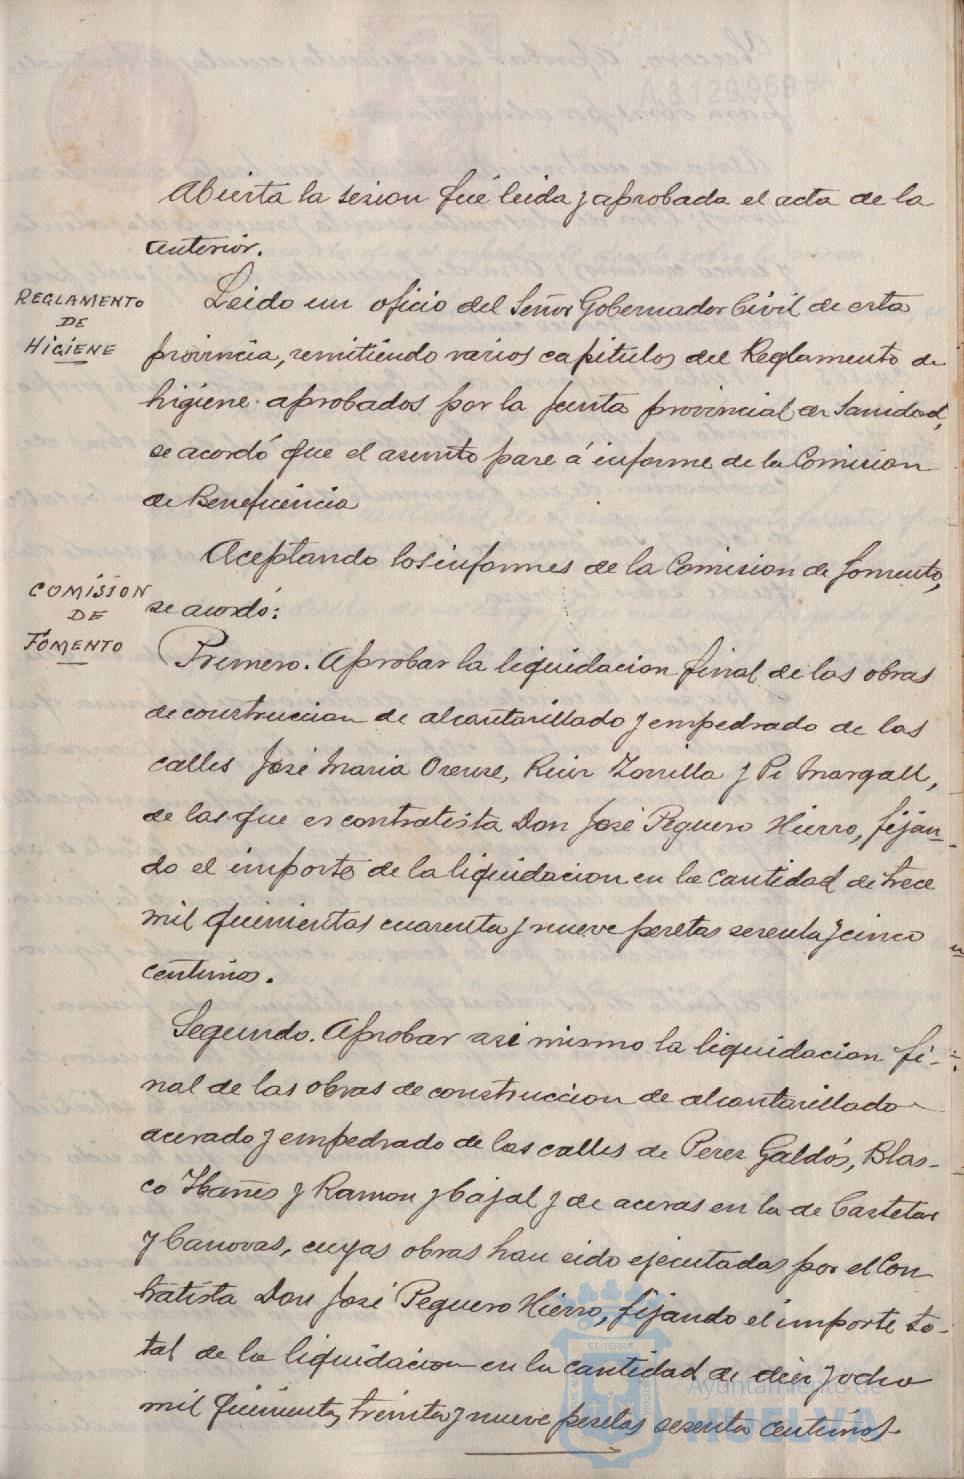 Abierta la sesion fué leida y aprobada el acta de la
anterior.
REGLAMENTO
DE
HIGIENE
Leido un oficio del Señor Gobernador Civil de esta
provincia, remitiendo varios capitulos del Reglamento de
higiene aprobados por la Junta provincial de Sanidad,
se acordó que el asunto pase á informe de la Comision
de Beneficencia
COMISION
DE
FOMENTO
Aceptando los informes de la Comision de Fomento,
se acordó:
Primero. Aprobar la liquidacion final de las obras
de construccion de alcantarillado y empedrado de las
calles José Maria Orense, Ruiz Zorrilla y Pi Margall,
de las que es contratista Don José Peguero Hierro, fijan-
do el importe de la liquidacion en la cantidad de trece
mil quinientas cuarenta y nueve pesetas sesenta y cinco
centimos.
Segundo. Aprobar asi mismo la liquidacion fi-
nal de las obras de construccion de alcantarillado
acerado y empedrado de las calles de Perez Galdós, Blas-
co Ibañes y Ramon y Cajal y de aceras en la de Castelar
y Canovas, cuyas obras han sido ejecutadas por el Con
tratista Don José Peguero Hierro, fijando el importe to-
tal de la liquidacion en la cantidad de diez y ocho
mil quinientas treinta y nueve pesetas sesenta centimos.
Ayuntamiento de
HUELVA